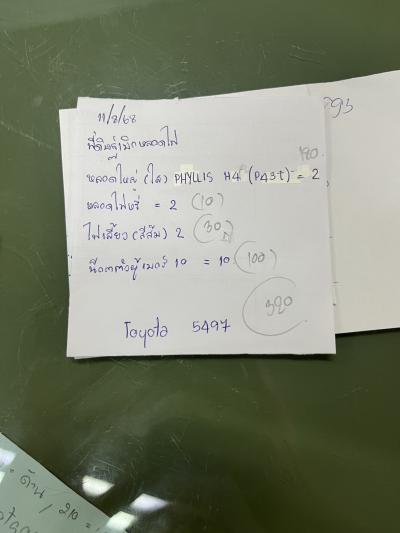 11/8/68
พี่ติ่งส์เบิกหลอดไฟ
180
หลอดใหญ่ (ใส) PHYLLIS H4 (P43t) = 2
หลอดไฟหรี่ = 2 (10)
ไฟเลี้ยว (สีส้ม) 2 (30)
น๊อตตัวผู้เบอร์ 10 = 10 (100)
320
Toyota 5497
293
= ด้าน / 210 =